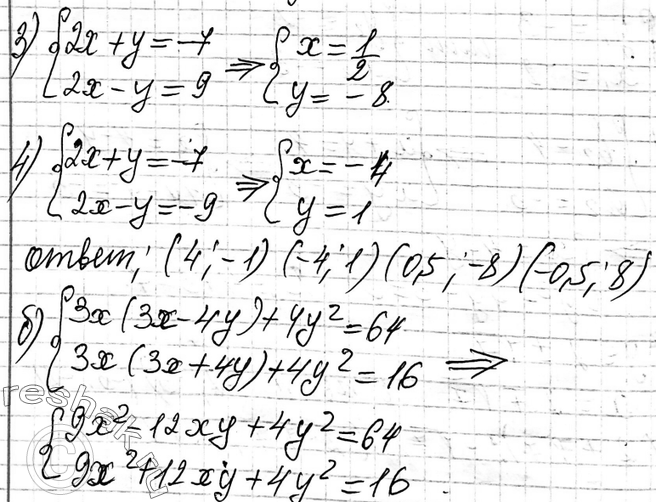 3) { 2x + y = -7 ⇒ { x = 1/2
2x - y = 9 y = -8
4) { 2x + y = -7 ⇒ { x = -4
2x - y = -9 y = 1
ответ: (4; -1) (-4; 1) (0,5; -8) (-0,5; 8)
б) { 3x (3x - 4y) + 4y² = 64
3x (3x + 4y) + 4y² = 16 ⇒
{ 9x² - 12xy + 4y² = 64
9x² + 12xy + 4y² = 16